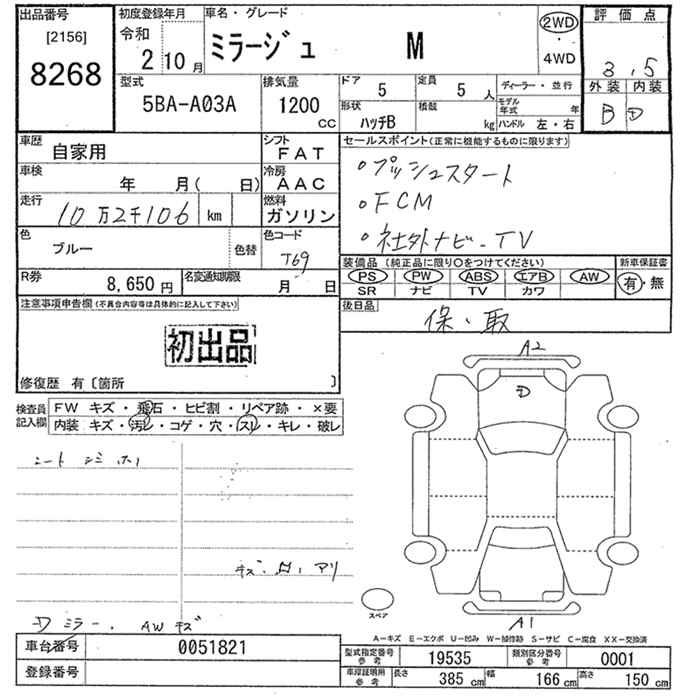 出品番号
[2156]
8268
初度登録年月
令和
2 10月
車名・グレード
ミラージュ M
2WD
・
4WD
評価点
3.5
外装 内装
B D
型式
5BA-A03A
排気量
1200
CC
ドア
5
定員
5人
形状
ハッチB
積載
kg
ディーラー・並行
モデル年式 年
ハンドル 左・右
車歴
自家用
シフト
FAT
車検
年 月( 日)
冷房
AAC
走行
10万2千106 km
燃料
ガソリン
色
ブルー
色替
色コード
T69
R券
8,650円
名変通知期限
月 日
セールスポイント(正常に機能するものに限ります)
・プッシュスタート
・FCM
・社外ナビ-TV
装備品(純正品に限り○をつけてください)
PS PW ABS エアB AW
SR ナビ TV カワ
新車保証書
有・無
後日品
保・取
注意事項申告欄(不具合内容等は具体的に記入して下さい)
初出品
修復歴 有〔箇所 〕
検査員記入欄
FW キズ・飛石・ヒビ割・リペア跡・×要
内装 キズ・汚レ・コゲ・穴・スレ・キレ・破レ
シート シミ
キズ・凹・アリ
ミラー、AWキズ
A2
A1
スペア
A-キズ E-エクボ U-凹み W-補修跡 S-サビ C-腐食 XX-交換済
車台番号
0051821
登録番号
型式指定番号参考
19535
類別区分番号参考
0001
車庫証明用参考
長さ 385 cm
幅 166 cm
高さ 150 cm